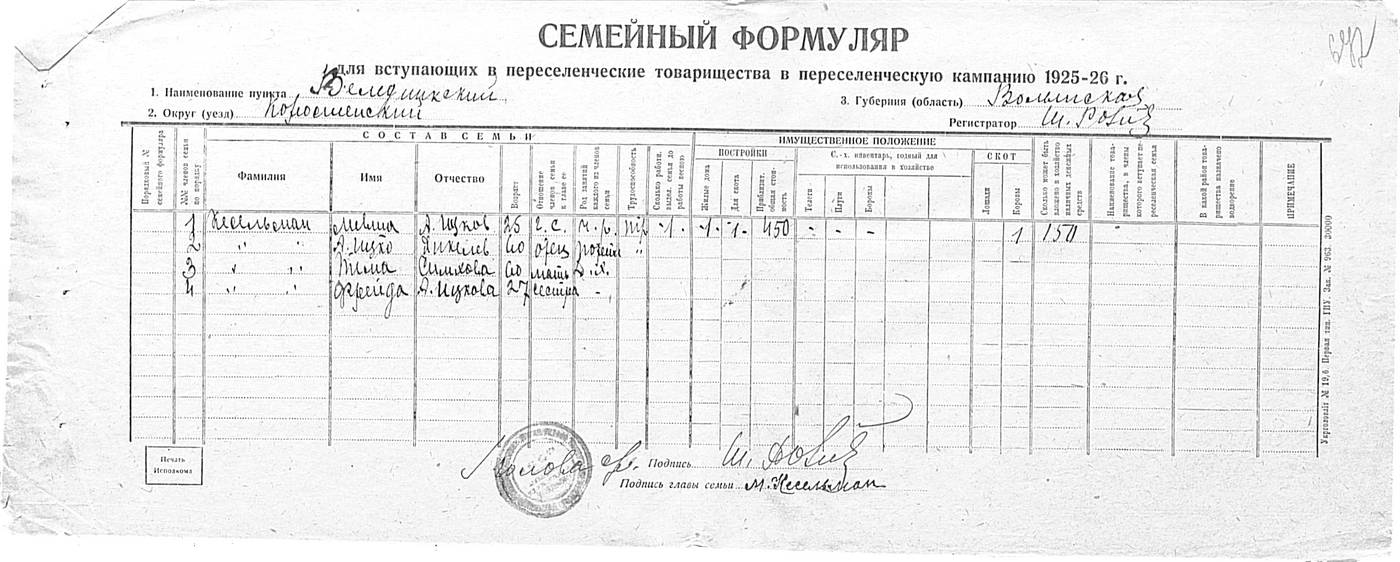 642
СЕМЕЙНЫЙ ФОРМУЛЯР
для вступающих в переселенческие товарищества в переселенческую кампанию 1925-26 г.
1. Наименование пункта Веледицкский
3. Губерния (область) Волынская
2. Округ (уезд) Коростенский
Регистратор Ш. Ровіч
СОСТАВ СЕМЬИ ИМУЩЕСТВЕННОЕ ПОЛОЖЕНИЕ
Порядковый № семейного формуляра
№№ членов семьи по порядку
Фамилия
Имя
Отчество
Возраст
Отношение членов семьи к главе ее
Род занятий каждого из членов семьи
Трудоспособность
Сколько работн. выдел. семья до работы весною
ПОСТРОЙКИ
Жилые дома
Для скота
Приблизит. общая стоимость
С.-х. инвентарь, годный для использования в хозяйстве
Телеги
Плуги
Бороны
СКОТ
Лошади
Коровы
Сколько может быть вложено в хозяйство наличных денежных средств
Наименование товарищества, в члены которого вступает переселенческая семья
В какой район товарищества назначено водворение
ПРИМЕЧАНИЕ
1 Кесельман А. Ицков 25 г. с. ч. р. тр -1- -1- -1- 450 - - - 1 150 -
2 " " А. Ицко 60 отец "
3 " " Симхова 60 мать д. х.
4 " " Фрейда А. Ицкова 27 сестра -
Укрголовліт № 19,6. Первая тип. ГПУ. Зак. № 963. 30000
Печать
Исполкома
Голова Подпись Ш. Ровіч
Подпись главы семьи М. Кесельман